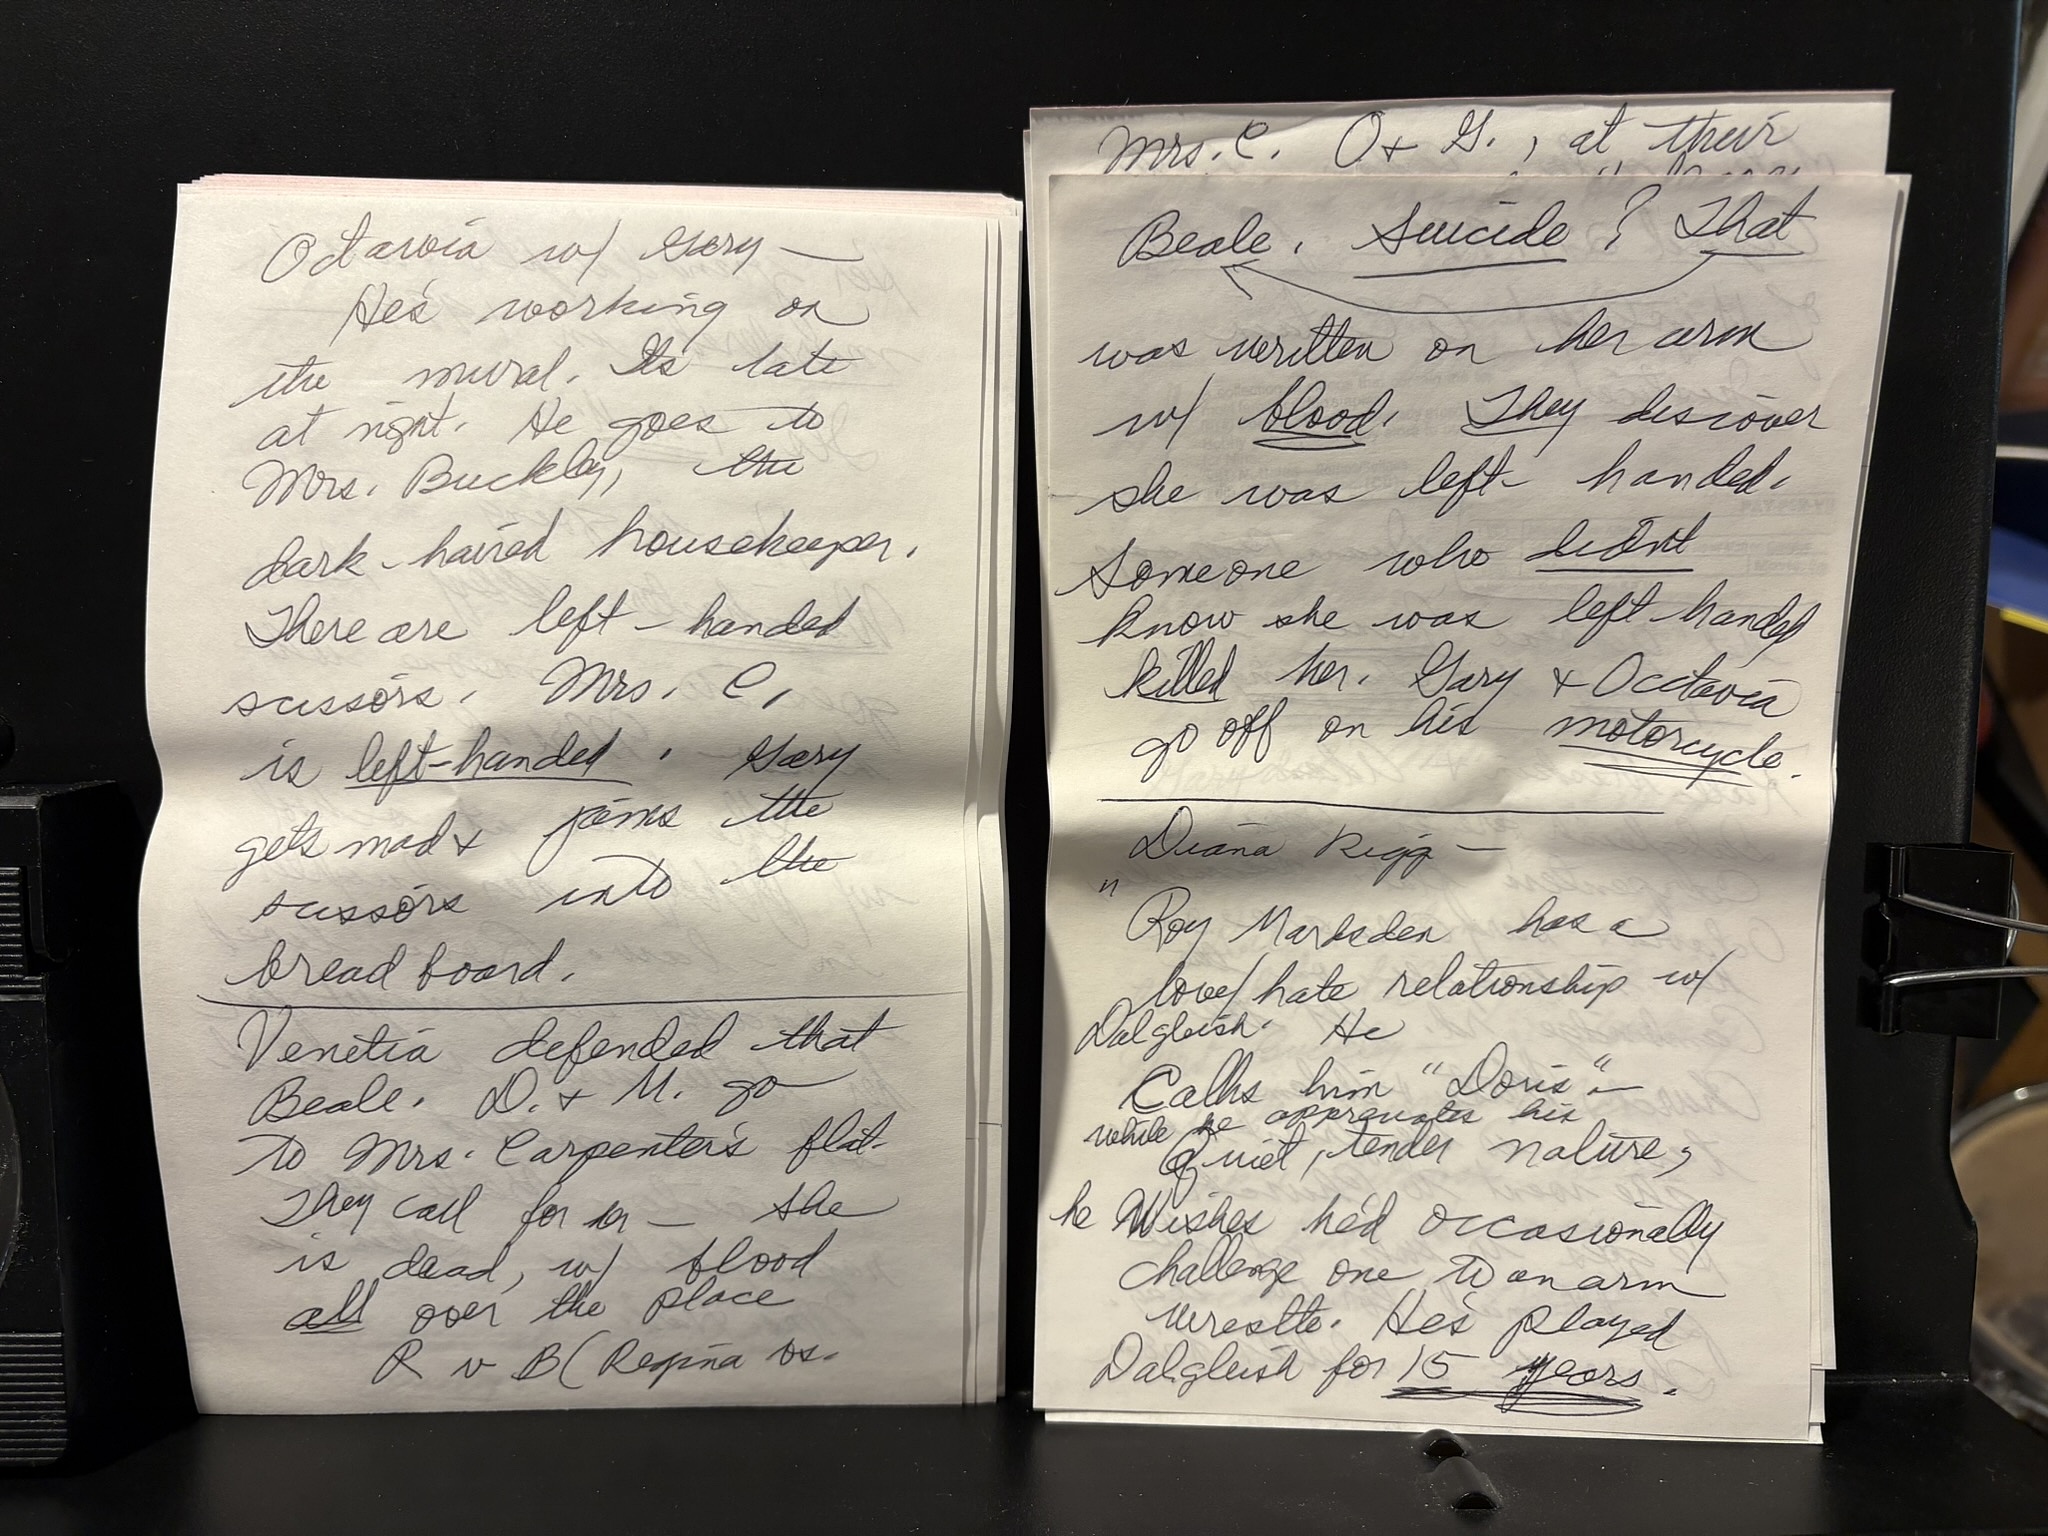 Octavia w/ Gary —
He's working on
the mural. Its late
at night. He goes to
Mrs. Buckley, the
dark-haired housekeeper.
There are left-handed
scissors. Mrs. C.
is left-handed. Gary
gets mad & jams the
scissors into the
bread board.
Venetia defended that
Beale. D. & M. go
to Mrs. Carpenter's flat.
They call for her — she
is dead, w/ blood
all over the place
R v B (Regina vs.
Mrs. C. O & G., at their
Beale. Suicide? That
was written on her arm
w/ blood. They discover
she was left-handed.
Someone who didn't
know she was left handed
killed her. Gary & Octavia
go off on his motorcycle.
Diana Rigg —
" Roy Marsden has a
love/hate relationship w/
Dalgleish. He
Calls him "Doris" —
while he appreciates his
Quiet, tender nature,
he Wishes he'd occasionally
challenge one to an arm
wrestle. He's played
Dalgleish for 15 years.